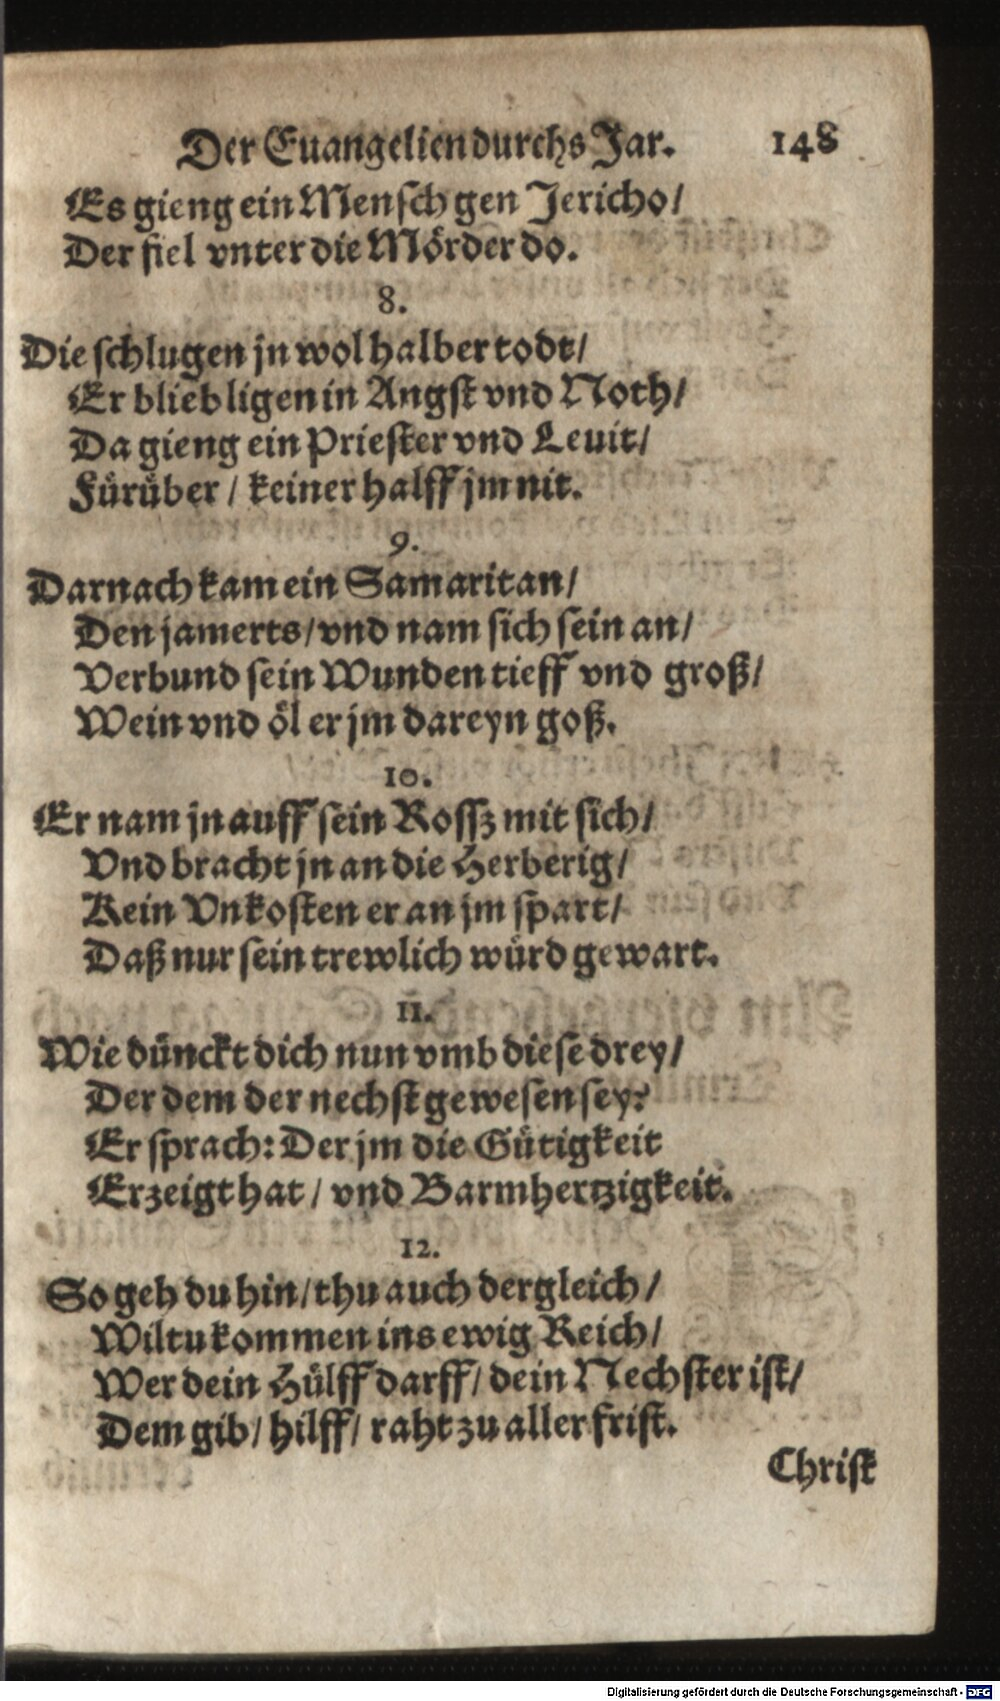 Der Euangelien durchs Jar. 148
Es gieng ein Mensch gen Jericho/
Der fiel vnter die Mörder do.
8.
Die schlugen jn wol halber todt/
Er blieb ligen in Angst vnd Noth/
Da gieng ein Priester vnd Leuit/
Fürüber / keiner halff jm nit.
9.
Darnach kam ein Samaritan/
Den jamerts/ vnd nam sich sein an/
Verbund sein Wunden tieff vnd groß/
Wein vnd öl er jm dareyn goß.
10.
Er nam jn auff sein Rossz mit sich/
Vnd bracht jn an die Herberig/
Kein Vnkosten er an jm spart/
Daß nur sein trewlich würd gewart.
11.
Wie dünckt dich nun vmb diese drey/
Der dem der nechst gewesen sey?
Er sprach: Der jm die Gütigkeit
Erzeigt hat / vnd Barmhertzigkeit.
12.
So geh du hin/ thu auch dergleich/
Wiltu kommen ins ewig Reich/
Wer dein Hülff darff/ dein Nechster ist/
Dem gib/ hilff/ raht zu aller frist.
Christ
Digitalisierung gefördert durch die Deutsche Forschungsgemeinschaft - DFG